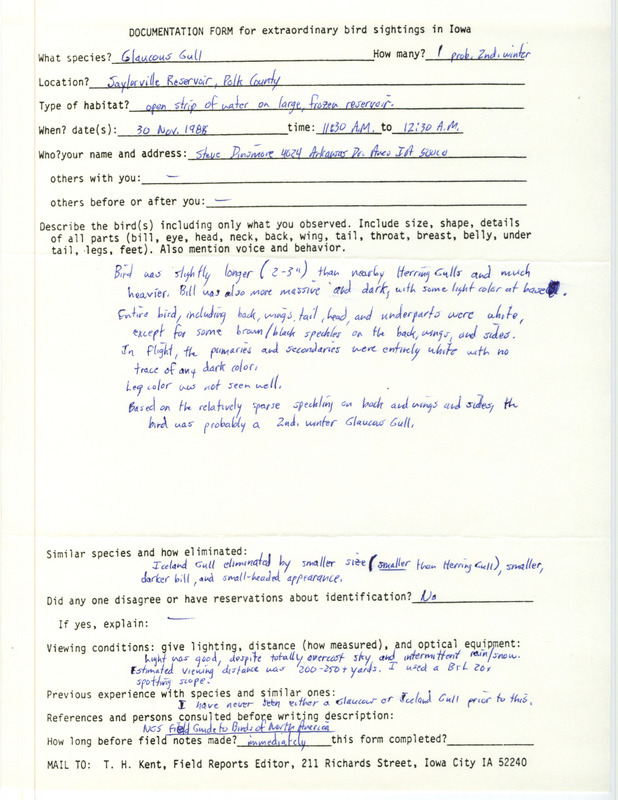 DOCUMENTATION FORM for extraordinary bird sightings in Iowa
What species? Glaucous Gull How many? 1 prob. 2nd. winter
Location? Saylorville Reservoir, Polk County
Type of habitat? open strip of water on large, frozen reservoir.
When? date(s): 30 Nov. 1988 time: 11:30 A.M. to 12:30 A.M.
Who?your name and address: Steve Dinsmore 4024 Arkansas Dr. Ames IA 50010
others with you: —
others before or after you: —
Describe the bird(s) including only what you observed. Include size, shape, details
of all parts (bill, eye, head, neck, back, wing, tail, throat, breast, belly, under
tail, legs, feet). Also mention voice and behavior.
Bird was slightly longer (2-3") than nearby Herring Gulls and much
heavier. Bill was also more massive and dark, with some light color at base.
Entire bird, including back, wings, tail, head, and underparts were white,
except for some brown/black speckles on the back, wings, and sides.
In flight, the primaries and secondaries were entirely white with no
trace of any dark color.
Leg color was not seen well.
Based on the relatively sparse speckling on back and wings and sides, the
bird was probably a 2nd. winter Glaucous Gull.
Similar species and how eliminated:
Iceland Gull eliminated by smaller size (smaller than Herring Gull), smaller,
darker bill, and small-headed appearance.
Did any one disagree or have reservations about identification? No
If yes, explain: —
Viewing conditions: give lighting, distance (how measured), and optical equipment:
Light was good, despite totally overcast sky and intermittent rain/snow.
Estimated viewing distance was 200-250+ yards. I used a B&L 20x
spotting scope.
Previous experience with species and similar ones:
I have never seen either a Glaucous or Iceland Gull prior to this.
References and persons consulted before writing description:
NGS Field Guide to Birds of North America
How long before field notes made? immediately this form completed?
MAIL TO: T. H. Kent, Field Reports Editor, 211 Richards Street, Iowa City IA 52240